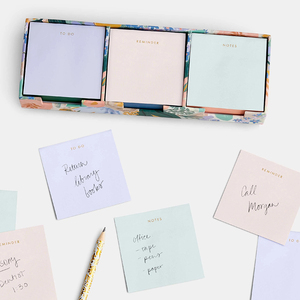 TO DO
REMINDER
NOTES
TO DO
Return
library
books
REMINDER
Call
Morgan
NOTES
office
- tape
- pens
- paper
REMINDER
1:30